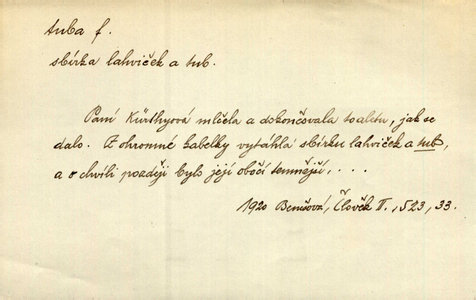 tuba f.
sbírka lahviček a tub.
Paní Kürthyová mlčela a dokončovala toaletu, jak se
dalo. Z ohromné kabelky vytáhla sbírku lahviček a tub,
a v chvíli později bylo její obočí temnější, . . .
1920 Benešová, Člověk II., 523, 33.